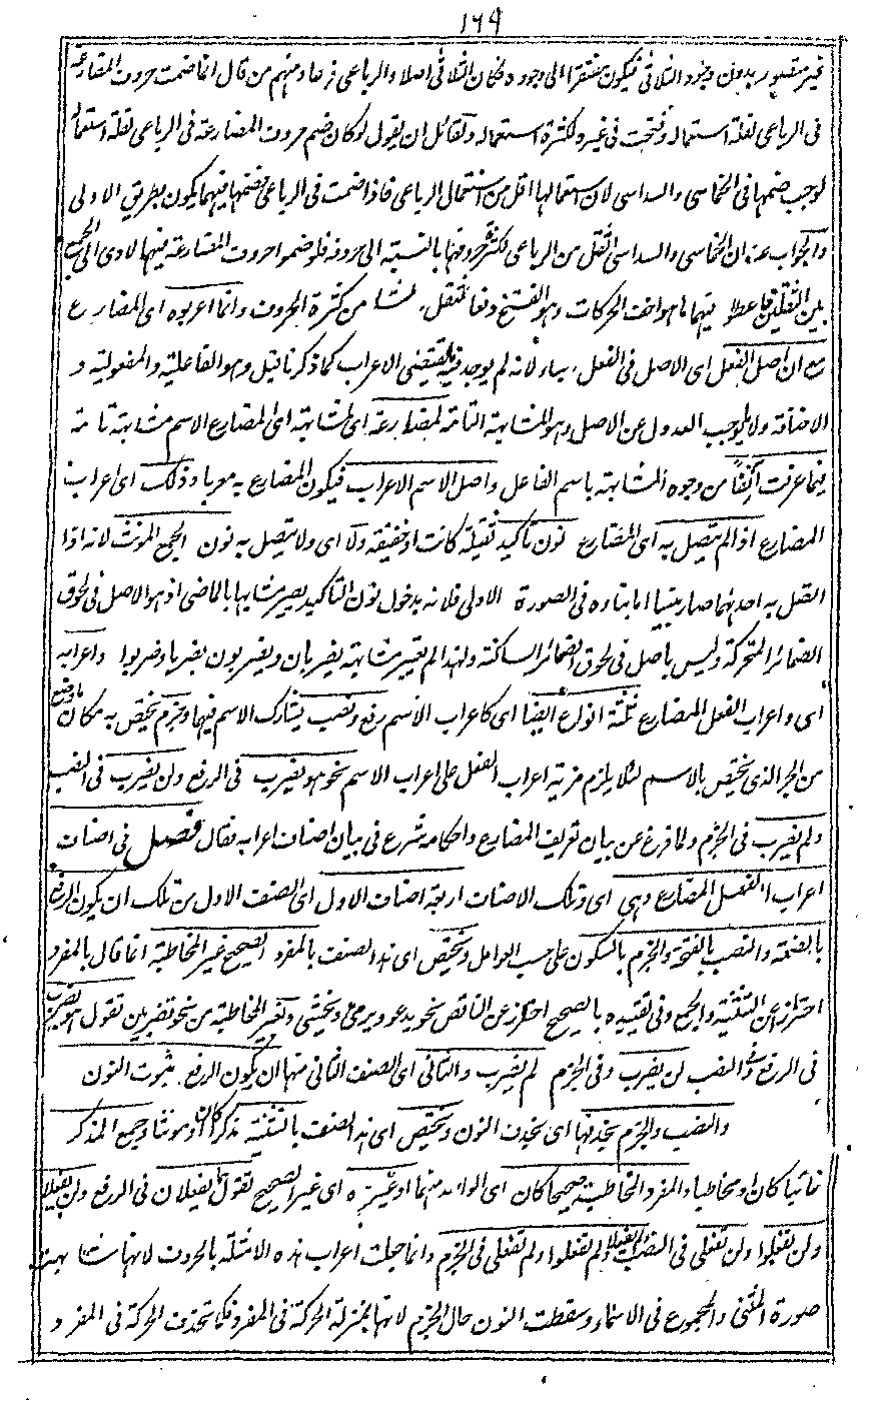 ١٦٩
غير مقصور بدون وجود الثلاثي فيكون مفتقرا الى وجوده فكان الثلاثي اصلا والرباعي فرعا ومنهم من قال انما ضمت حروف المضارعة
فى الرباعى لقلة استعماله وفتحت فى غيره لكثرة استعماله ولقائل ان يقول لو كان ضم حروف المضارعة فى الرباعى لقلة استعماله
لوجب ضمها فى الخماسى والسداسى لان استعمالها اقل من استعمال الرباعى فاذا ضمت فى الرباعى فضمها فيهما يكون بطريق الاولى
والجواب عنه ان الخماسى والسداسى اثقل من الرباعى لكثرة حروفهما بالنسبة الى حروفه فلو ضموا حروف المضارعة فيهما لادى الى الجمع
بين الثقلين فاعطوا فيهما ما هو اخف الحركات وهو الفتح دفعا لثقل نشا من كثرة الحروف وانما اعربوه اى المضارع
مع ان اصل الفعل اى الاصل فى الفعل البناء لانه لم يوجد فيه مقتضى الاعراب كما ذكرنا قبل وهو الفاعلية والمفعولية و
الاضافة ولا يوجب العدول عن الاصل وهو المشابهة التامة لمضارعة اى لمشابهة اى المضارع الاسم مشابهة تامة
فيما عرفت آنفا من وجوه المشابهة باسم الفاعل واصل الاسم الاعراب فيكون المضارع به معربا وذلك اى اعراب
المضارع اذا لم يتصل به اى المضارع نون تاكيد ثقيلة كانت او خفيفة ولا اى ولا يتصل به نون الجمع المونث لانه اذا
اتصل به احدهما صار مبنيا اما بناوه فى الصورة الاولى فلانه بدخول نون التاكيد يصير مشابها بالماضى اذ هو الاصل فى لحوق
الضمائر المتحركة وليس باصل فى لحوق الضمائر الساكنة ولهذا لم يعتبر مشابهة يضربان ويضربون بضربا وضربوا واعرابه
اى واعراب الفعل المضارع ثلثة انواع ايضا اى كاعراب الاسم رفع ونصب يشارك الاسم فيهما وجزم يختص به مكان ما وضع
من الجر الذى يختص بالاسم لئلا يلزم مزية اعراب الفعل على اعراب الاسم نحو هو يضرب فى الرفع ولن يضرب فى النصب
ولم يضرب فى الجزم ولما فرغ عن بيان تعريف المضارع واحكامه شرع فى بيان اصناف اعرابه فقال فصل فى اصناف
اعراب الفعل المضارع وهى اى وتلك الاصناف اربعة اصناف الاول اى الصنف الاول من تلك ان يكون الرفع
بالضمة والنصب بالفتحة والجزم بالسكون على حسب العوامل ويختص اى هذا الصنف بالمفرد الصحيح غير المخاطبة انما قال بالمفرد
احترازا عن التثنية والجمع وفى تقييده بالصحيح احتراز عن الناقص نحو يدعو ويرمى ويخشى وبغير المخاطبة من نحو تضربين تقول هو يضرب
فى الرفع وفى النصب لن يضرب وفى الجزم لم يضرب والثانى اى الصنف الثانى منها ان يكون الرفع بثبوت النون
والنصب والجزم بحذفها اى بحذف النون ويختص اى هذا الصنف بالتثنية مذكرا كان او مونثا وجمع المذكر
غائبا كان او مخاطبا والمفرد المخاطبة صحيحا كان اى الواحد منهما او غيره اى غير الصحيح تقول هما يفعلان فى الرفع ولن يفعلا
ولن تفعلوا ولن تفعلى فى النصب ولم يفعلا ولم تفعلوا ولم تفعلى فى الجزم وانما جعلت اعراب هذه الامثلة بالحروف لانها شابهت
صورة المثنى والمجموع فى الاسماء وسقطت النون حال الجزم لانها بمنزلة الحركة فى المفرد فكما تحذف الحركة فى المفرد